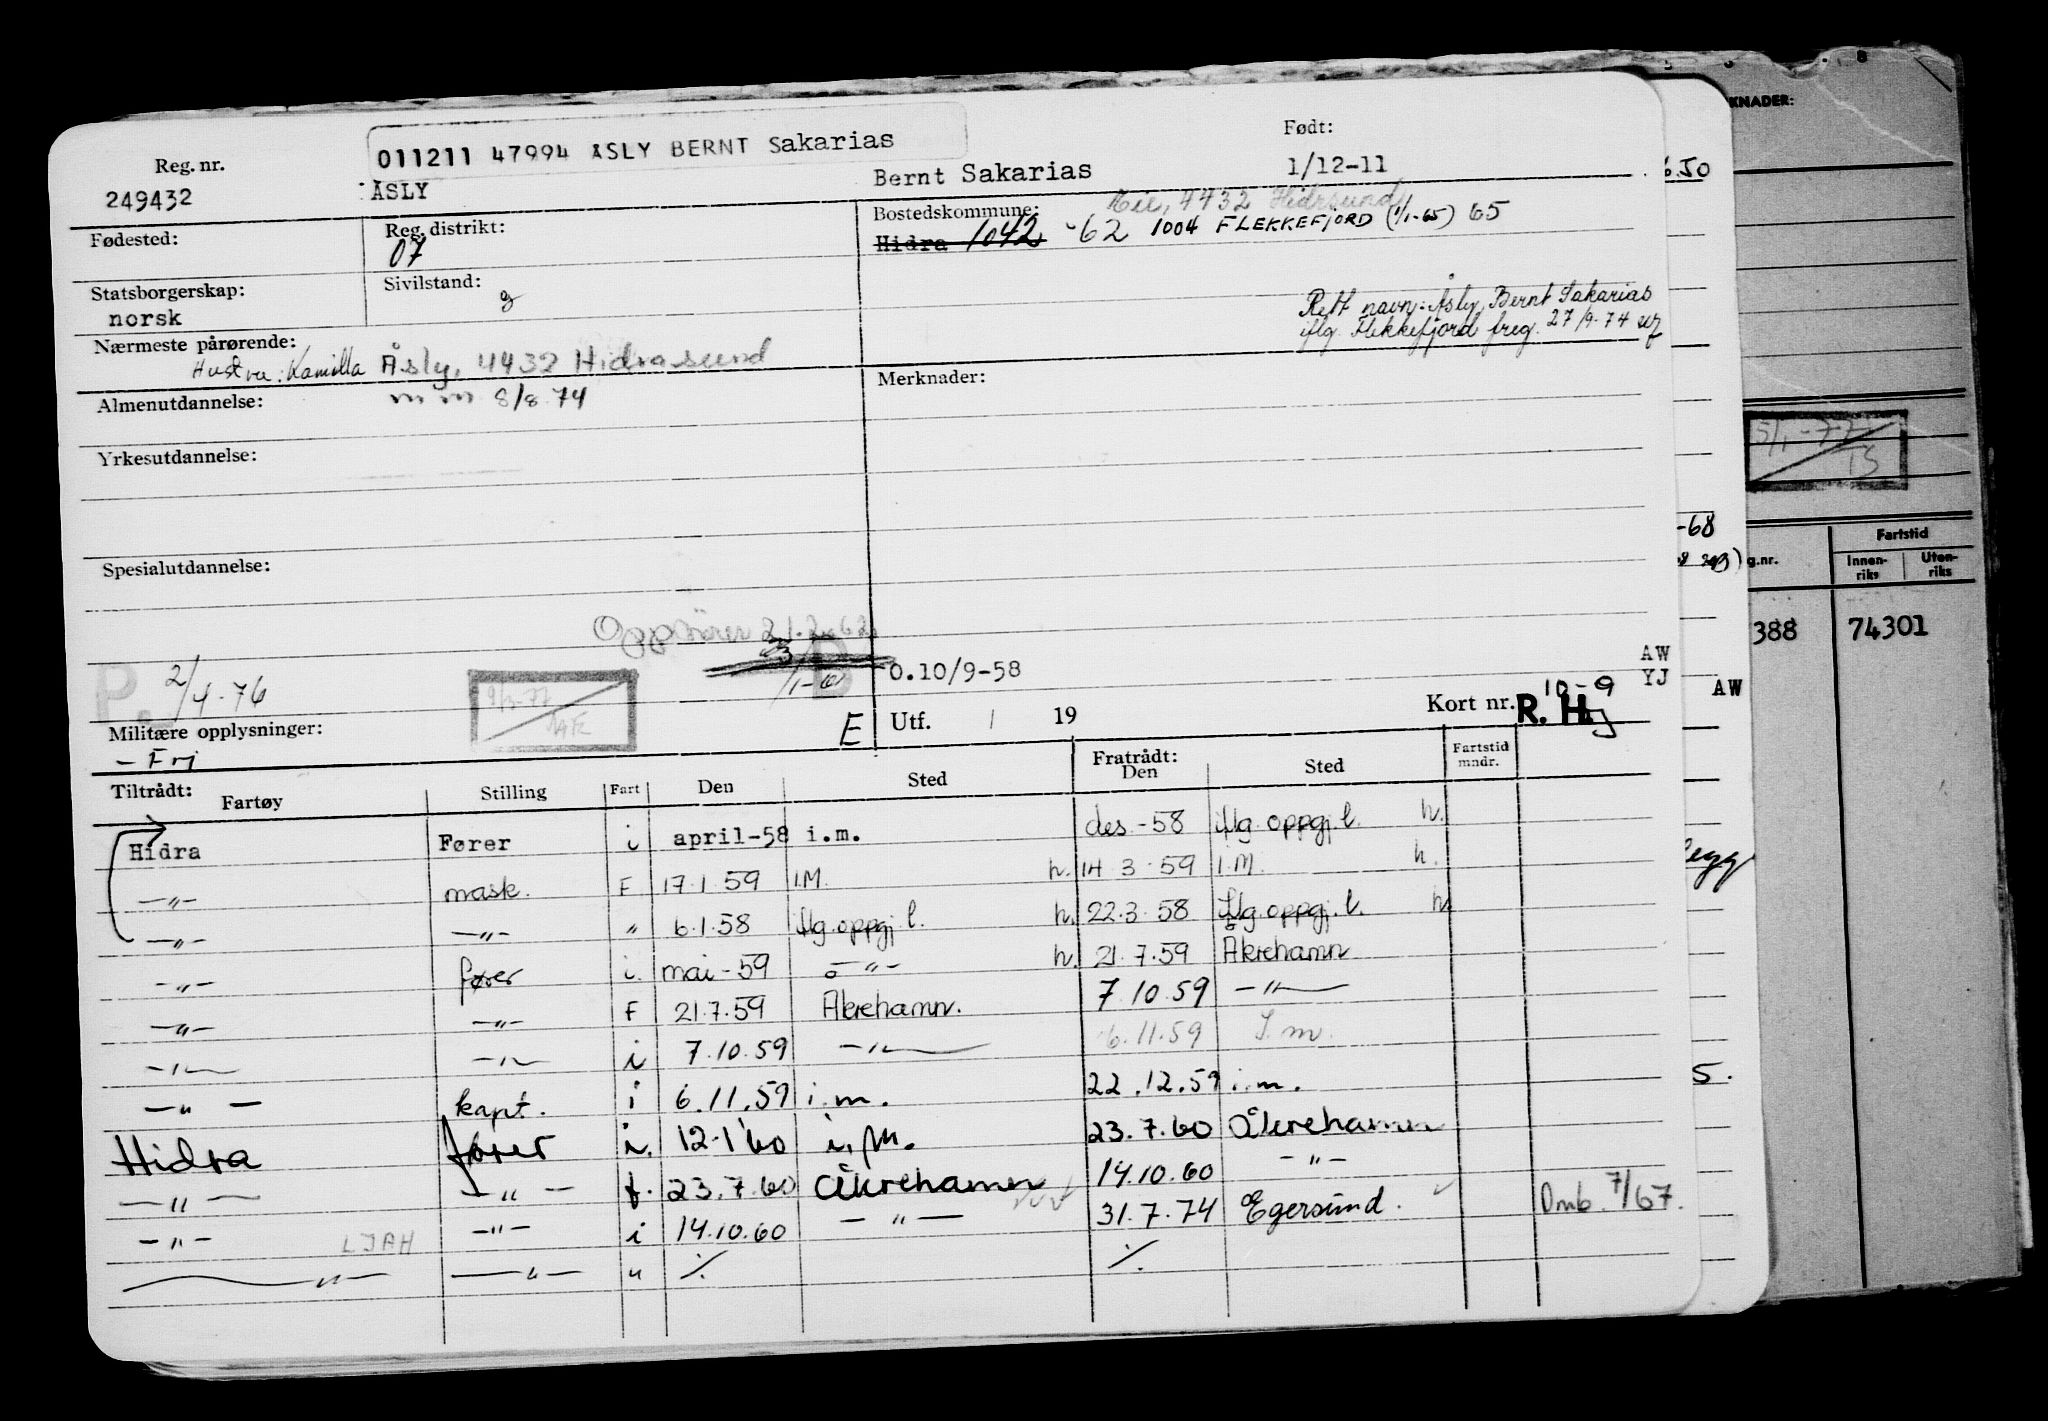 011211 47994 ÅSLY BERNT Sakarias
Reg. nr.
249432
ÅSLY
Bernt Sakarias
Født:
1/12-11
Fødested:
Reg. distrikt:
07
Bostedskommune:
4432 Hidrsund
Hidra 1042 -62 1004 FLEKKEFJORD (1/1-65) 65
Statsborgerskap:
norsk
Sivilstand:
g
Rett navn: Åsly, Bernt Sakarias
iflg. Flekkefjord freg. 27/9-74
Nærmeste pårørende:
Hustru: Kamilla Åsly, 4432 Hidrasund
8/8 74
Merknader:
Almenutdannelse:
Yrkesutdannelse:
Spesialutdannelse:
P. 2/4-76
O.10/9-58
AW
YJ
Militære opplysninger:
- Fri
E
Utf. / 19
Kort nr. R. H. 10-9
Tiltrådt:
Fartøy Stilling Fart Den Sted Fratrådt: Den Sted Fartstid mndr.
Hidra Fører i april-58 i.m. des.-58 iflg. oppgj. l. h.
-"- mask. F 17.1.59 I.M. h. 14.3.59 I.M. h.
-"- -"- " 6.1.58 iflg. oppgj. l. h. 22.3.58 iflg. oppgj. l. h.
-"- fører i. mai-59 -"- h. 21.7.59 Åkrehamn
-"- -"- F 21.7.59 Åkrehamn. 7.10.59 -"-
-"- -"- i 7.10.59 -"- 6.11.59 I.m.
-"- kapt. i 6.11.59 i.m. 22.12.59 i.m.
Hidra fører i. 12-1-60 i.M. 23.7.60 Åkrehamn
-"- -"- f. 23.7.60 Åkrehamn 14.10.60 -"-
-"- LJAH -"- i 14.10.60 -"- 31.7.74 Egersund. Omb. 7/67.
-"- -"- " ./. ./.
KNADER:
6.50
-68
g.nr.
Fartstid
Innen-riks
Uten-riks
388 74301
AW
5.